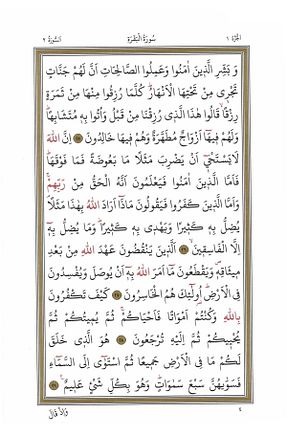 الجزء ١ سورة البقرة السورة ٢
وَ بَشِّرِ الَّذِينَ آمَنُوا وَعَمِلُوا الصَّالِحَاتِ أَنَّ لَهُمْ جَنَّاتٍ
تَجْرِى مِنْ تَحْتِهَا الْأَنْهَارُ كُلَّمَا رُزِقُوا مِنْهَا مِنْ ثَمَرَةٍ
رِزْقًا قَالُوا هٰذَا الَّذِى رُزِقْنَا مِنْ قَبْلُ وَأُتُوا بِهِ مُتَشَابِهًا
وَلَهُمْ فِيهَا أَزْوَاجٌ مُطَهَّرَةٌ وَهُمْ فِيهَا خَالِدُونَ ٢٥ إِنَّ اللهَ
لَا يَسْتَحْيِى أَنْ يَضْرِبَ مَثَلًا مَا بَعُوضَةً فَمَا فَوْقَهَا
فَأَمَّا الَّذِينَ آمَنُوا فَيَعْلَمُونَ أَنَّهُ الْحَقُّ مِنْ رَبِّهِمْ
وَأَمَّا الَّذِينَ كَفَرُوا فَيَقُولُونَ مَاذَا أَرَادَ اللهُ بِهٰذَا مَثَلًا
يُضِلُّ بِهِ كَثِيرًا وَيَهْدِى بِهِ كَثِيرًا وَمَا يُضِلُّ بِهِ
إِلَّا الْفَاسِقِينَ ٢٦ الَّذِينَ يَنْقُضُونَ عَهْدَ اللهِ مِنْ بَعْدِ
مِيثَاقِهِ وَيَقْطَعُونَ مَا أَمَرَ اللهُ بِهِ أَنْ يُوصَلَ وَيُفْسِدُونَ
فِى الْأَرْضِ أُولٰئِكَ هُمُ الْخَاسِرُونَ ٢٧ كَيْفَ تَكْفُرُونَ
بِاللهِ وَكُنْتُمْ أَمْوَاتًا فَأَحْيَاكُمْ ثُمَّ يُمِيتُكُمْ ثُمَّ
يُحْيِيكُمْ ثُمَّ إِلَيْهِ تُرْجَعُونَ ٢٨ هُوَ الَّذِى خَلَقَ
لَكُمْ مَا فِى الْأَرْضِ جَمِيعًا ثُمَّ اسْتَوٰى إِلَى السَّمَاءِ
فَسَوّٰيهُنَّ سَبْعَ سَمٰوَاتٍ وَهُوَ بِكُلِّ شَىْءٍ عَلِيمٌ ٢٩
٤
وَإِذْ قَالَ